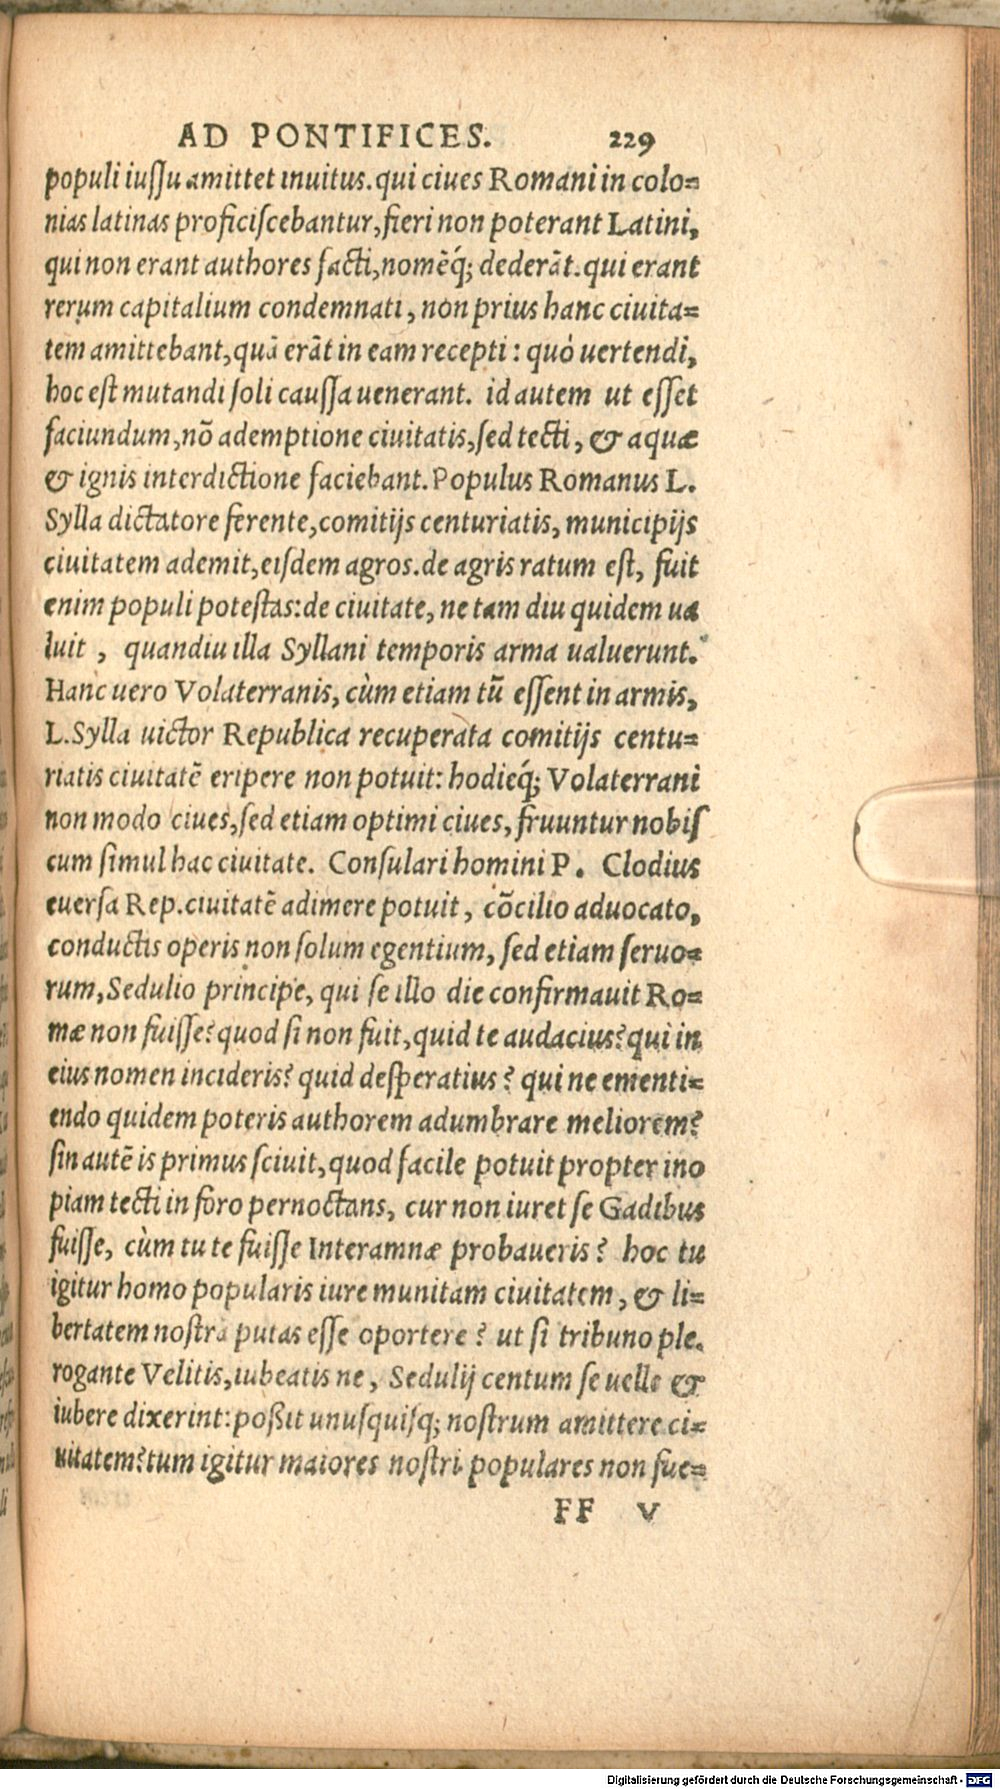 AD PONTIFICES. 229
populi iussu amittet inuitus. qui ciues Romani in colo=
nias latinas proficiscebantur, fieri non poterant Latini,
qui non erant authores facti, nomēq́; dederāt. qui erant
rerum capitalium condemnati, non prius hanc ciuita=
tem amittebant, quā erāt in eam recepti: quò uertendi,
hoc est mutandi soli caussa uenerant. id autem ut esset
faciundum, nō ademptione ciuitatis, sed tecti, & aquæ
& ignis interdictione faciebant. Populus Romanus L.
Sylla dictatore ferente, comitijs centuriatis, municipijs
ciuitatem ademit, eisdem agros. de agris ratum est, fuit
enim populi potestas: de ciuitate, ne tam diu quidem ua
luit, quandiu illa Syllani temporis arma ualuerunt.
Hanc uero Volaterranis, cùm etiam tū essent in armis,
L. Sylla uictor Republica recuperata comitijs centu=
riatis ciuitatē eripere non potuit: hodieq́; Volaterrani
non modo ciues, sed etiam optimi ciues, fruuntur nobis
cum simul hac ciuitate. Consulari homini P. Clodius
euersa Rep. ciuitatē adimere potuit, cōcilio aduocato,
conductis operis non solum egentium, sed etiam seruo=
rum, Sedulio principe, qui se illo die confirmauit Ro=
mæ non fuisse? quod si non fuit, quid te audacius? qui in
eius nomen incideris? quid desperatius? qui ne ementi=
endo quidem poteris authorem adumbrare meliorem?
sin autē is primus sciuit, quod facile potuit propter ino
piam tecti in foro pernoctans, cur non iuret se Gadibus
fuisse, cùm tu te fuisse Interamnæ probaueris? hoc tu
igitur homo popularis iure munitam ciuitatem, & li=
bertatem nostra putas esse oportere? ut si tribuno ple.
rogante Velitis, iubeatis ne, Sedulij centum se uelle &
iubere dixerint: poßit unusquisq; nostrum amittere ci=
uitatem? tum igitur maiores nostri populares non fue=
FF v
Digitalisierung gefördert durch die Deutsche Forschungsgemeinschaft - DFG